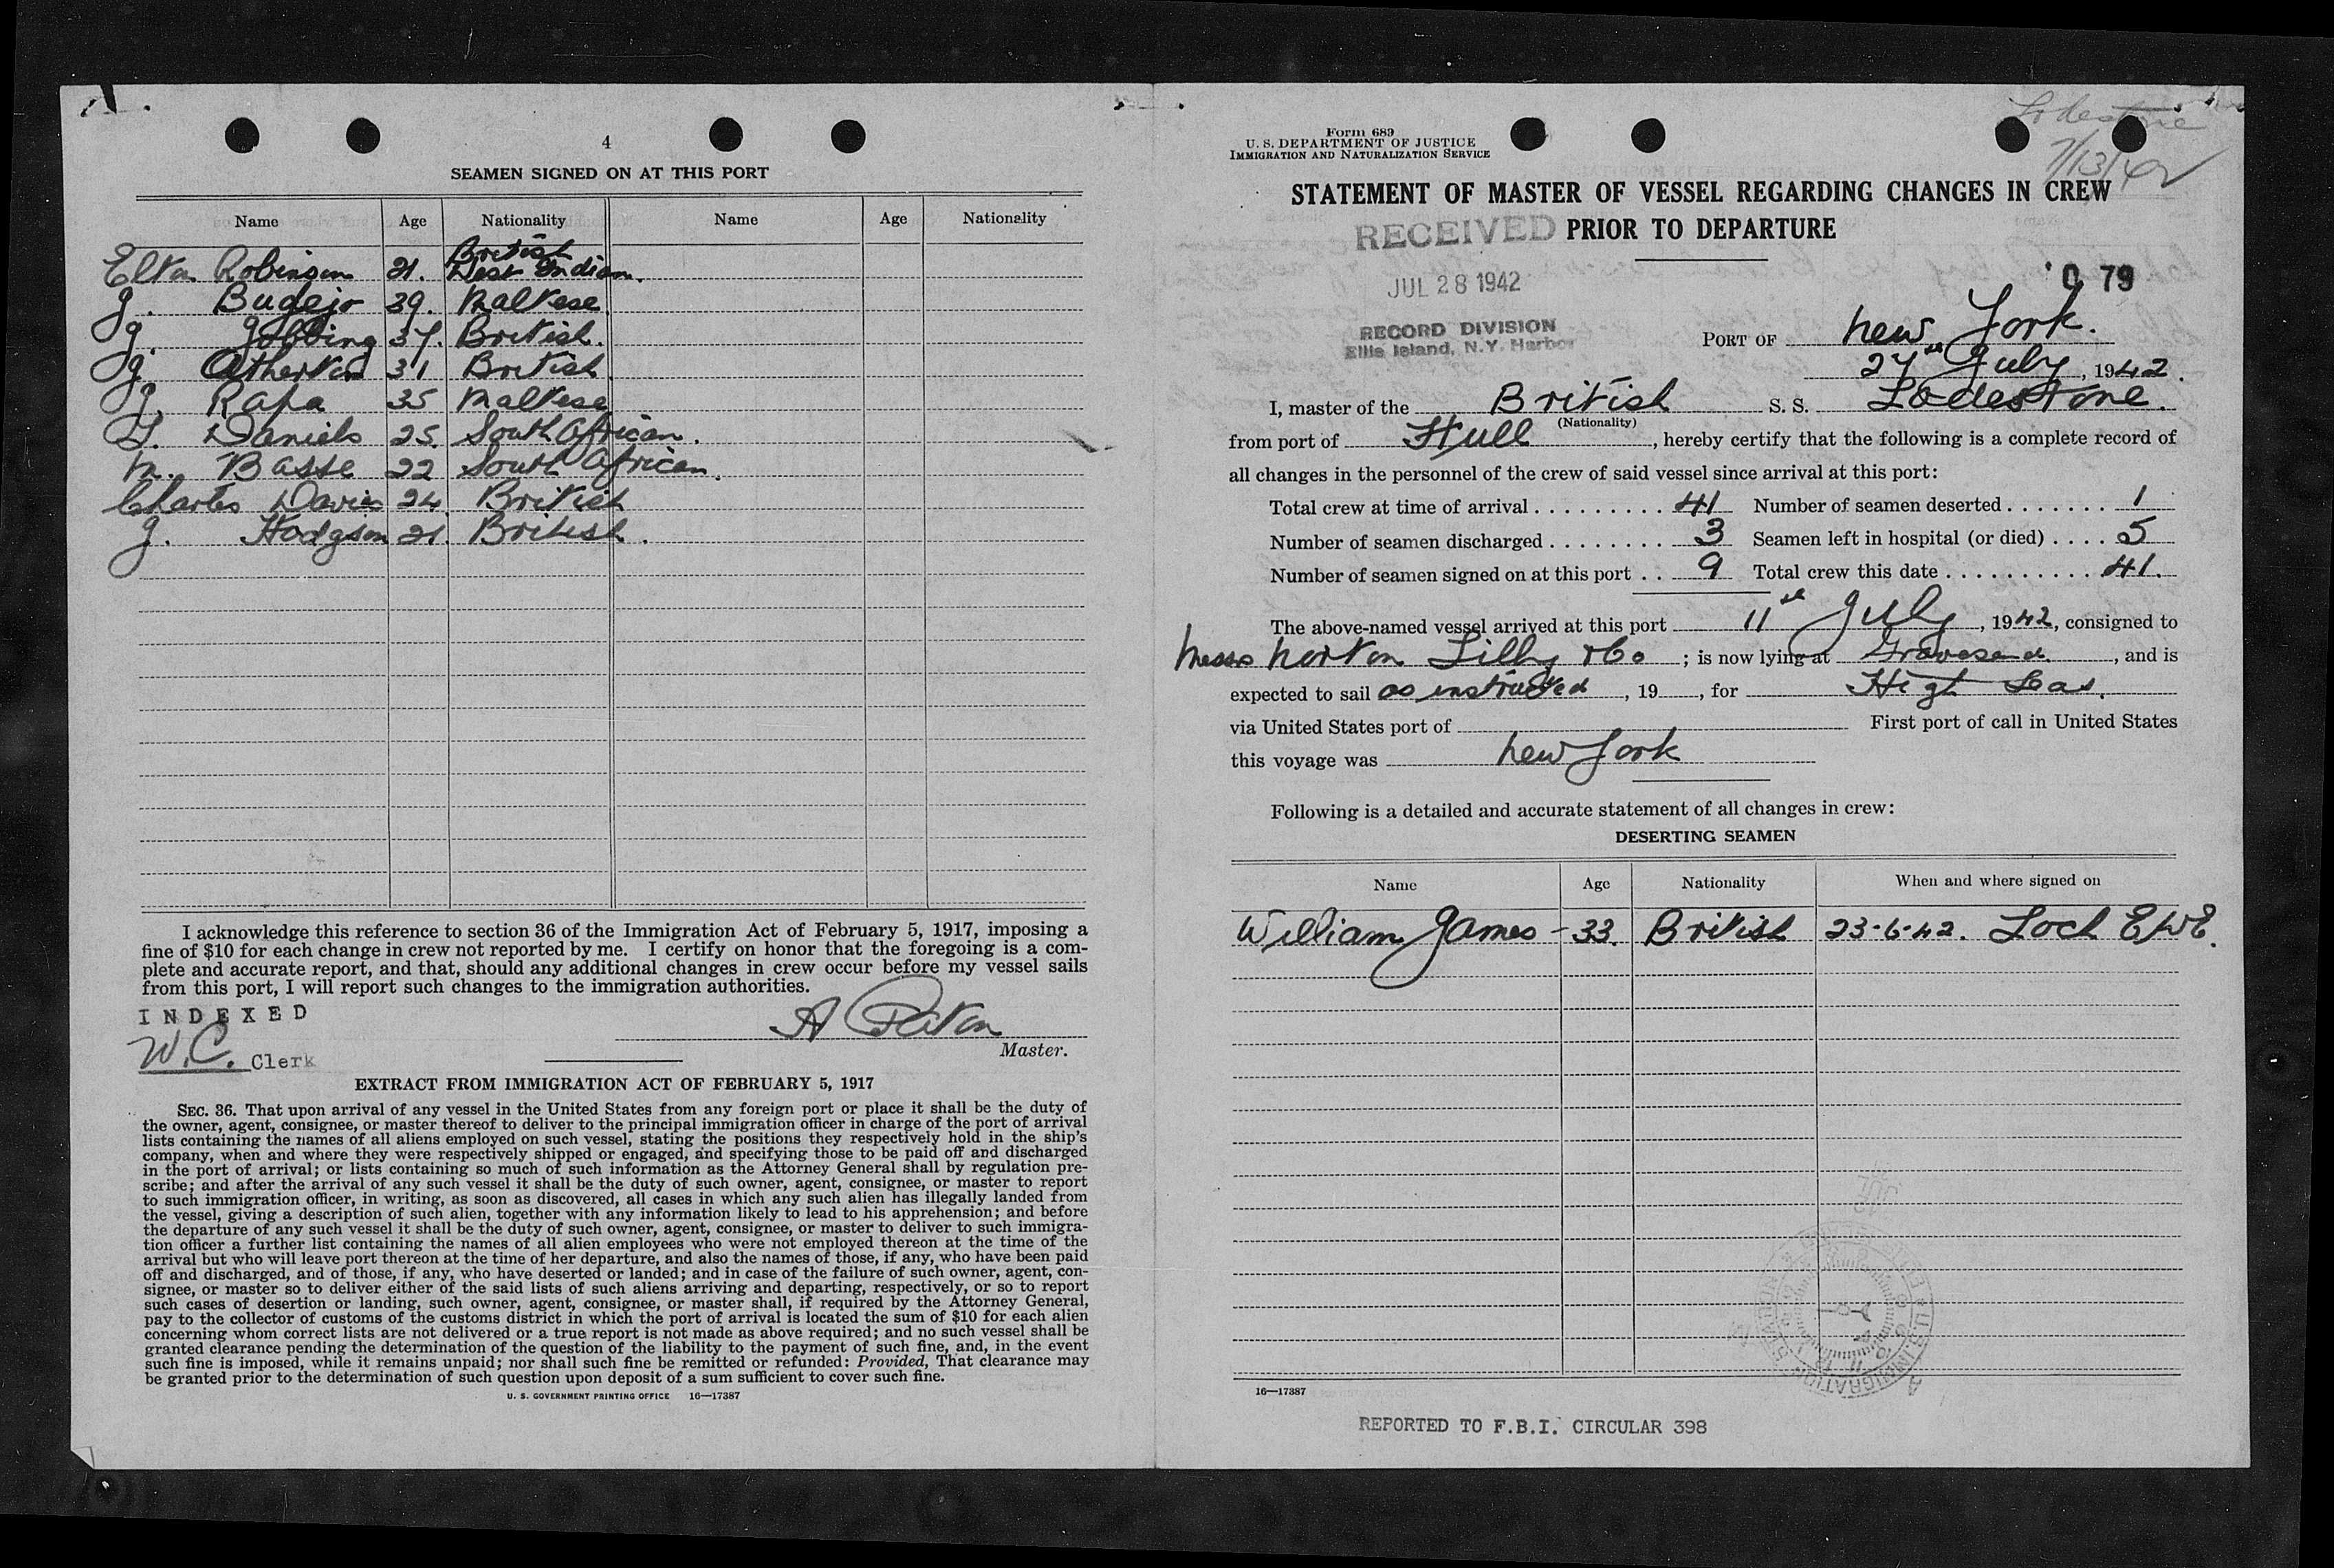 4
SEAMEN SIGNED ON AT THIS PORT
Name Age Nationality Name Age Nationality
Elton Robinson 21. British West Indian.
J. Bugejo 39. Maltese
J. Gobbing 37. British.
J. Atherton 31 British
J. Rapa 35 Maltese
J. Daniels 25. South African.
M. Basse 22 South African.
Charles Davis 24 British
J. Hodgson 21. British.
I acknowledge this reference to section 36 of the Immigration Act of February 5, 1917, imposing a
fine of $10 for each change in crew not reported by me. I certify on honor that the foregoing is a com-
plete and accurate report, and that, should any additional changes in crew occur before my vessel sails
from this port, I will report such changes to the immigration authorities.
INDEXED
W.C. Clerk
A Paton
Master.
EXTRACT FROM IMMIGRATION ACT OF FEBRUARY 5, 1917
SEC. 36. That upon arrival of any vessel in the United States from any foreign port or place it shall be the duty of
the owner, agent, consignee, or master thereof to deliver to the principal immigration officer in charge of the port of arrival
lists containing the names of all aliens employed on such vessel, stating the positions they respectively hold in the ship's
company, when and where they were respectively shipped or engaged, and specifying those to be paid off and discharged
in the port of arrival; or lists containing so much of such information as the Attorney General shall by regulation pre-
scribe; and after the arrival of any such vessel it shall be the duty of such owner, agent, consignee, or master to report
to such immigration officer, in writing, as soon as discovered, all cases in which any such alien has illegally landed from
the vessel, giving a description of such alien, together with any information likely to lead to his apprehension; and before
the departure of any such vessel it shall be the duty of such owner, agent, consignee, or master to deliver to such immigra-
tion officer a further list containing the names of all alien employees who were not employed thereon at the time of the
arrival but who will leave port thereon at the time of her departure, and also the names of those, if any, who have been paid
off and discharged, and of those, if any, who have deserted or landed; and in case of the failure of such owner, agent, con-
signee, or master so to deliver either of the said lists of such aliens arriving and departing, respectively, or so to report
such cases of desertion or landing, such owner, agent, consignee, or master shall, if required by the Attorney General,
pay to the collector of customs of the customs district in which the port of arrival is located the sum of $10 for each alien
concerning whom correct lists are not delivered or a true report is not made as above required; and no such vessel shall be
granted clearance pending the determination of the question of the liability to the payment of such fine, and, in the event
such fine is imposed, while it remains unpaid; nor shall such fine be remitted or refunded: Provided, That clearance may
be granted prior to the determination of such question upon deposit of a sum sufficient to cover such fine.
U. S. GOVERNMENT PRINTING OFFICE 16—17387
Form 689
U. S. DEPARTMENT OF JUSTICE
IMMIGRATION AND NATURALIZATION SERVICE
Lodestone
7/13/42
STATEMENT OF MASTER OF VESSEL REGARDING CHANGES IN CREW
PRIOR TO DEPARTURE
RECEIVED
JUL 28 1942
RECORD DIVISION
Ellis Island, N.Y. Harbor
0 79
PORT OF New York.
27th July, 1942.
I, master of the British S. S. Lodestone.
(Nationality)
from port of Hull, hereby certify that the following is a complete record of
all changes in the personnel of the crew of said vessel since arrival at this port:
Total crew at time of arrival . . . . . . . . . 41 Number of seamen deserted . . . . . . . 1
Number of seamen discharged . . . . . . . . 3 Seamen left in hospital (or died) . . . . 5
Number of seamen signed on at this port . . 9 Total crew this date . . . . . . . . . . . 41.
The above-named vessel arrived at this port 11th July, 1942, consigned to
Messrs Norton Lilly & Co; is now lying at Gravesend, and is
expected to sail as instructed, 19, for High Seas.
via United States port of First port of call in United States
this voyage was New York
Following is a detailed and accurate statement of all changes in crew:
DESERTING SEAMEN
Name Age Nationality When and where signed on
William James - 33. British 23-6-42. Loch EWE.
U.S. IMMIGRATION STATION
16—17387
REPORTED TO F.B.I. CIRCULAR 398